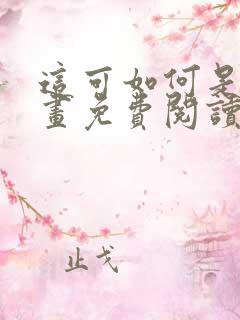 這可如何是
畫免費閱讀
止戈